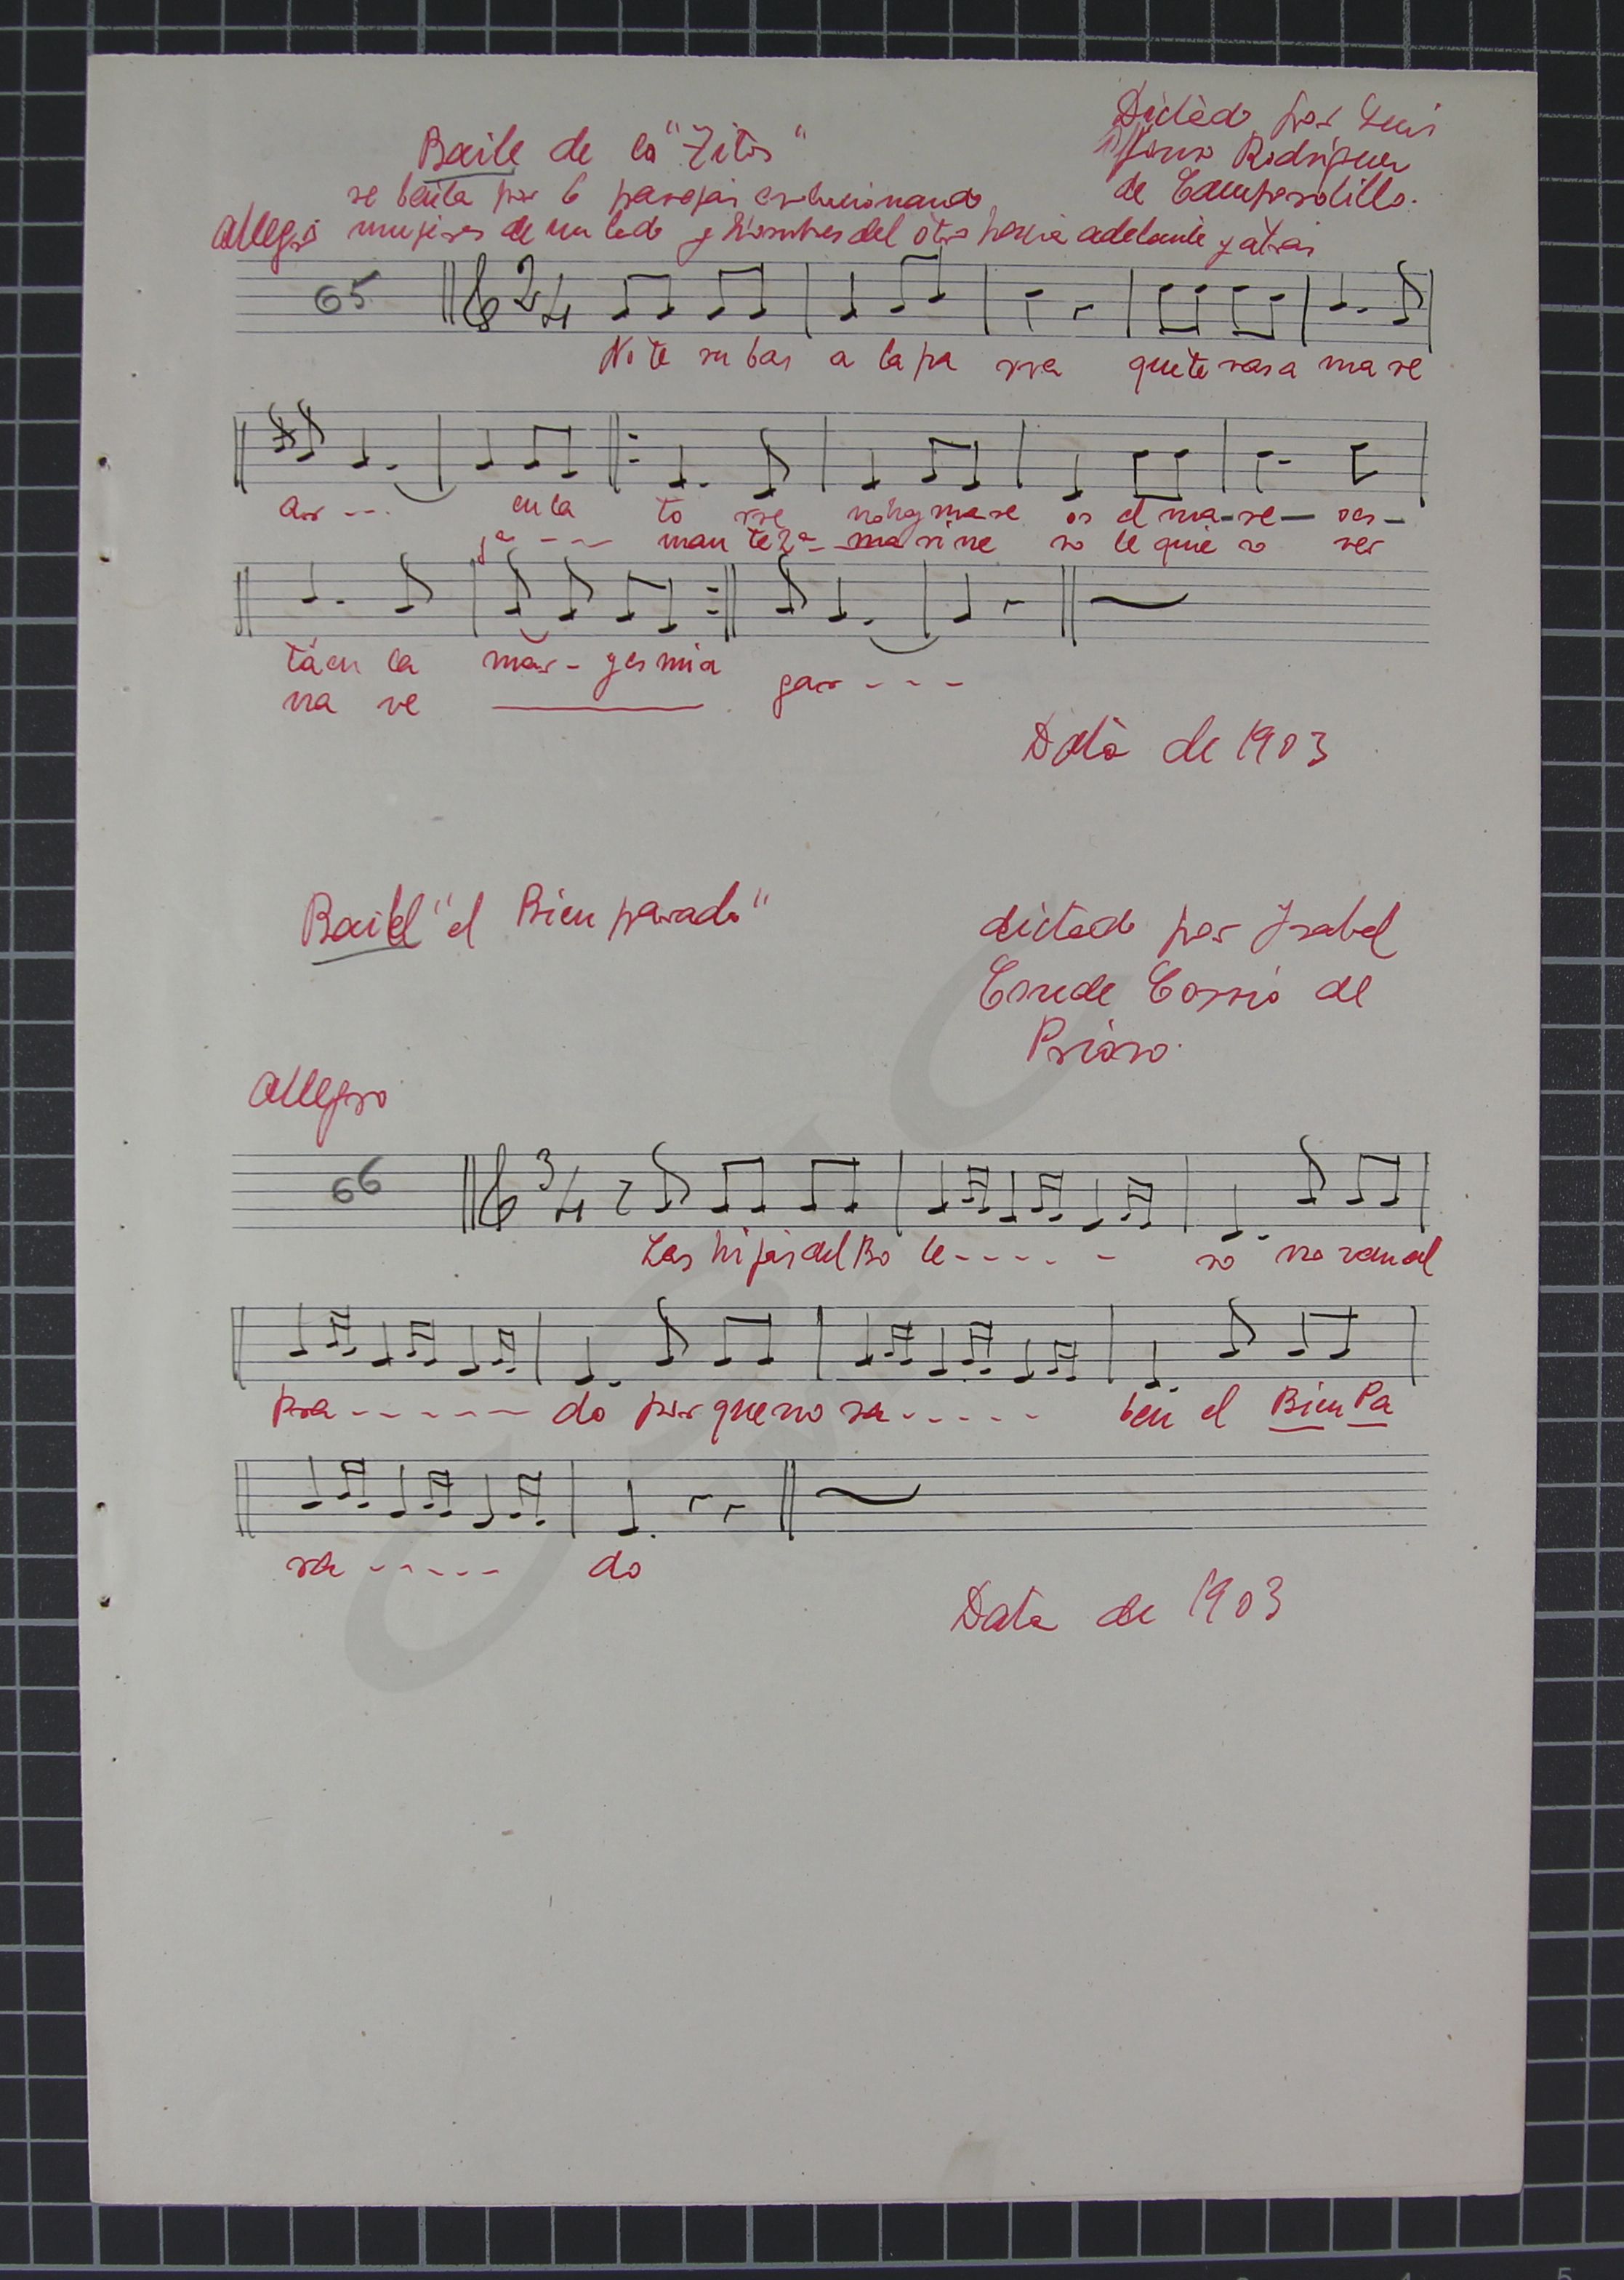 Baile de la "Zitos"
Dictado por Luis
Alfonso Rodriguez
de Camposolillo.
se baila por 6 parejas evolucionando
Allegro mujeres de un lado y hombres del otro hacia adelante y atras
65 2/4
No te su bas a la pa rra que te vas a ma re
ar --- en la to rre no hay ma re os el ma - re - o es -
1ª - - - man te 2ª - ma ri ne ro le quie ro ver
tá en la mar - y es mia
na ve gar - - -
Data de 1903
Baile "el Bien parado"
dictado por Ysabel
Conde Cossio de
Prioro.
Allegro
66 3/4
Las hi jas del Bo le - - - - - ro no van al
pra - - - - - - do por que no sa - - - - - ben el Bien Pa
ra - - - - - do
Data de 1903
CSIC
IMF
4 5